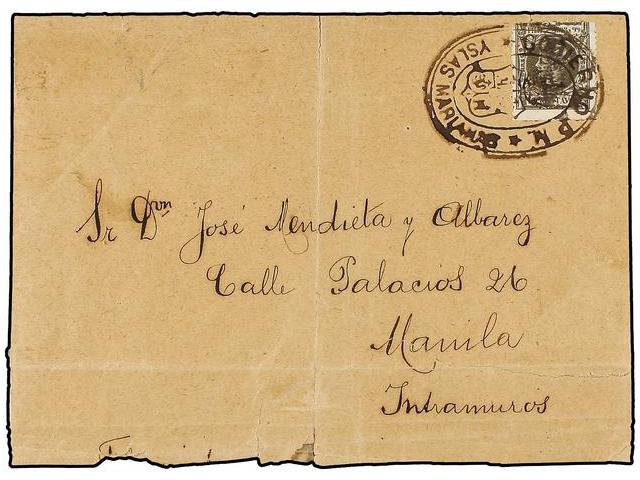 GOBIERNO P. M.
YSLAS MARIANAS
Sr Dvn José Mendieta y Albarez
Calle Palacios 26
Manila
Intramuros